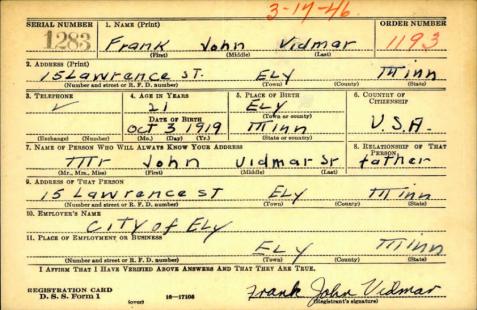 3-14-46
SERIAL NUMBER 1. NAME (Print) ORDER NUMBER
1283 Frank John Vidmar 1193
(First) (Middle) (Last)
2. ADDRESS (Print)
15 Lawrence ST. ELY Minn
(Number and street or R. F. D. number) (Town) (County) (State)
3. TELEPHONE 4. AGE IN YEARS 5. PLACE OF BIRTH 6. COUNTRY OF CITIZENSHIP
21 ELY
DATE OF BIRTH (Town or county)
Oct 3 1919 Minn U.S.A.
(Exchange) (Number) (Mo.) (Day) (Yr.) (State or country)
7. NAME OF PERSON WHO WILL ALWAYS KNOW YOUR ADDRESS 8. RELATIONSHIP OF THAT PERSON
Mr John Vidmar Sr father
(Mr., Mrs., Miss) (First) (Middle) (Last)
9. ADDRESS OF THAT PERSON
15 Lawrence ST ELY Minn
(Number and street or R. F. D. number) (Town) (County) (State)
10. EMPLOYER'S NAME
City of ELY
11. PLACE OF EMPLOYMENT OR BUSINESS
ELY Minn
(Number and street or R. F. D. number) (Town) (County) (State)
I AFFIRM THAT I HAVE VERIFIED ABOVE ANSWERS AND THAT THEY ARE TRUE.
REGISTRATION CARD
D. S. S. Form 1 (over) 16-17105 Frank John Vidmar
(Registrant's signature)